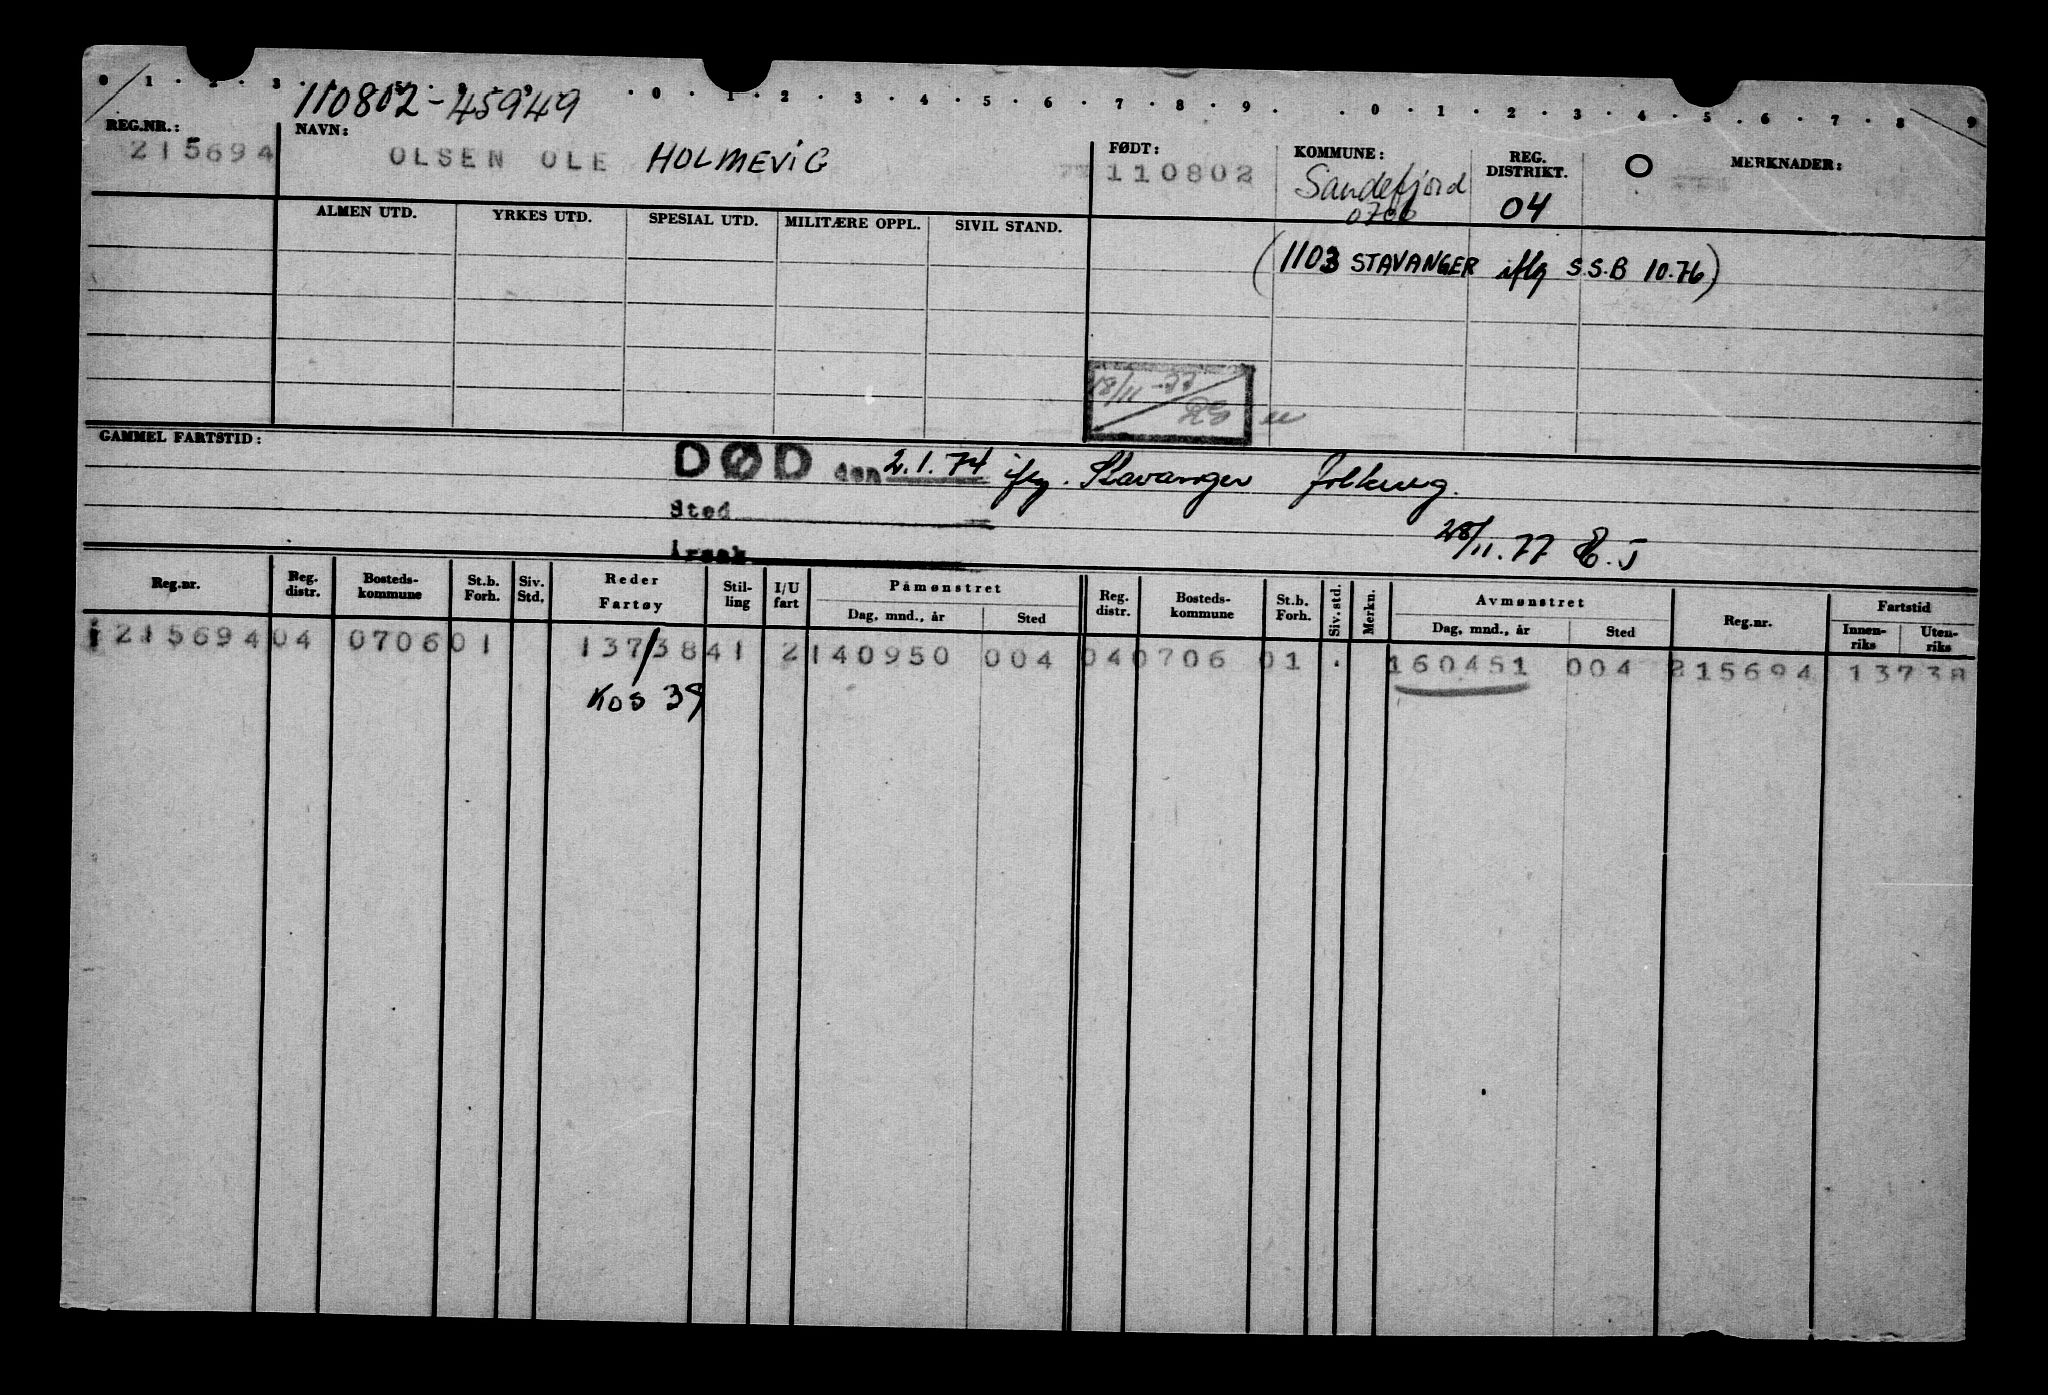 0 1 · 2 · 3 · 0 · 1 · 2 · 3 · 4 · 5 · 6 · 7 · 8 · 9 · 0 · 1 · 2 · 3 · 4 · 5 · 6 · 7 · 8 9
110802-45949
REG.NR.: NAVN: FØDT: KOMMUNE: REG. DISTRIKT. O MERKNADER:
215694 OLSEN OLE HOLMEVIG 110802 Sandefjord 0706 04
ALMEN UTD. YRKES UTD. SPESIAL UTD. MILITÆRE OPPL. SIVIL STAND.
(1103 STAVANGER iflg S.S.B 10.76)
28/11-77
GAMMEL FARTSTID:
DØD den 2.1.74 iflg. Stavanger folkereg.
Sted
Årsak
28/11.77 E.J
Reg.nr. Reg. distr. Bosteds-kommune St.b. Forh. Siv. Std. Reder Fartøy Stil-ling I/U fart Påmønstret Dag, mnd., år Sted Reg. distr. Bosteds-kommune St.b. Forh. Siv. std. Merkn. Avmønstret Dag, mnd., år Sted Reg.nr. Fartstid Innen-riks Uten-riks
215694 04 0706 01 137/38 41 2 140950 004 04 0706 01 . 160451 004 215694 13738
KOS 38